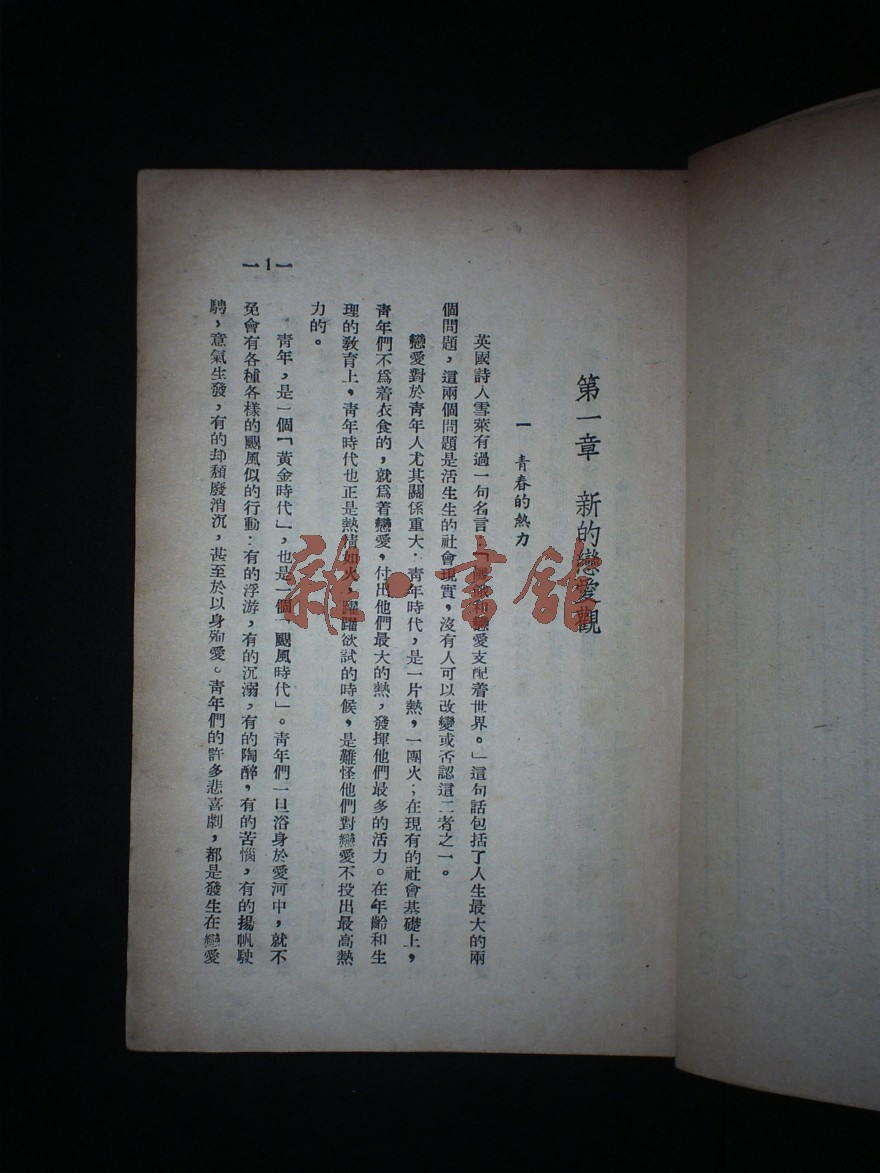 第一章　新的戀愛觀
一　青春的熱力
英國詩人雪萊有過一句名言：「饑餓和戀愛支配着世界。」這句話包括了人生最大的兩
個問題，這兩個問題是活生生的社會現實，沒有人可以改變或否認這二者之一。
戀愛對於青年人尤其關係重大。青年時代，是一片熱，一團火；在現有的社會基礎上，
青年們不爲着衣食的，就爲着戀愛，付出他們最大的熱，發揮他們最多的活力。在年齡和生
理的敎育上，青年時代也正是熱情如火，躍躍欲試的時候，是難怪他們對戀愛不投出最高熱
力的。
青年，是一個「黃金時代」，也是一個「颶風時代」。青年們一旦浴身於愛河中，就不
免會有各種各樣的颶風似的行動：有的浮游，有的沉溺，有的陶醉，有的苦惱，有的揚帆駛
騁，意氣生發，有的却頹廢消沉，甚至於以身殉愛。青年們的許多悲喜劇，都是發生在戀愛
一1一
雜·書館